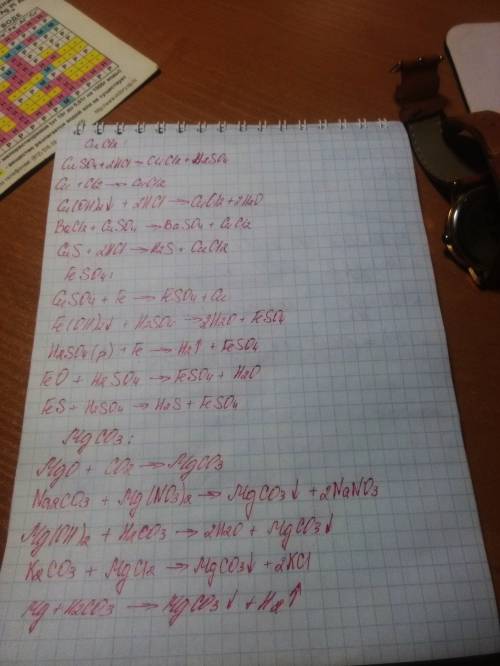 CuCl2:
CuSO4+2HCl→CuCl2+H2SO4
Cu+Cl2→CuCl2
Cu(OH)2↓ + 2HCl→CuCl2+2H2O
BaCl2+CuSO4→BaSO4+CuCl2
CuS+2HCl→H2S+CuCl2
FeSO4:
CuSO4+Fe→FeSO4+Cu
Fe(OH)2↓+H2SO4→2H2O+FeSO4
H2SO4(р)+Fe→H2↑+FeSO4
FeO+H2SO4→FeSO4+H2O
FeS+H2SO4→H2S+FeSO4
MgCO3:
MgO+CO2→MgCO3
Na2CO3+Mg(NO3)2→MgCO3↓+2NaNO3
Mg(OH)2+H2CO3→2H2O+MgCO3↓
K2CO3+MgCl2→MgCO3↓+2KCl
Mg+H2CO3→MgCO3↓+H2↑